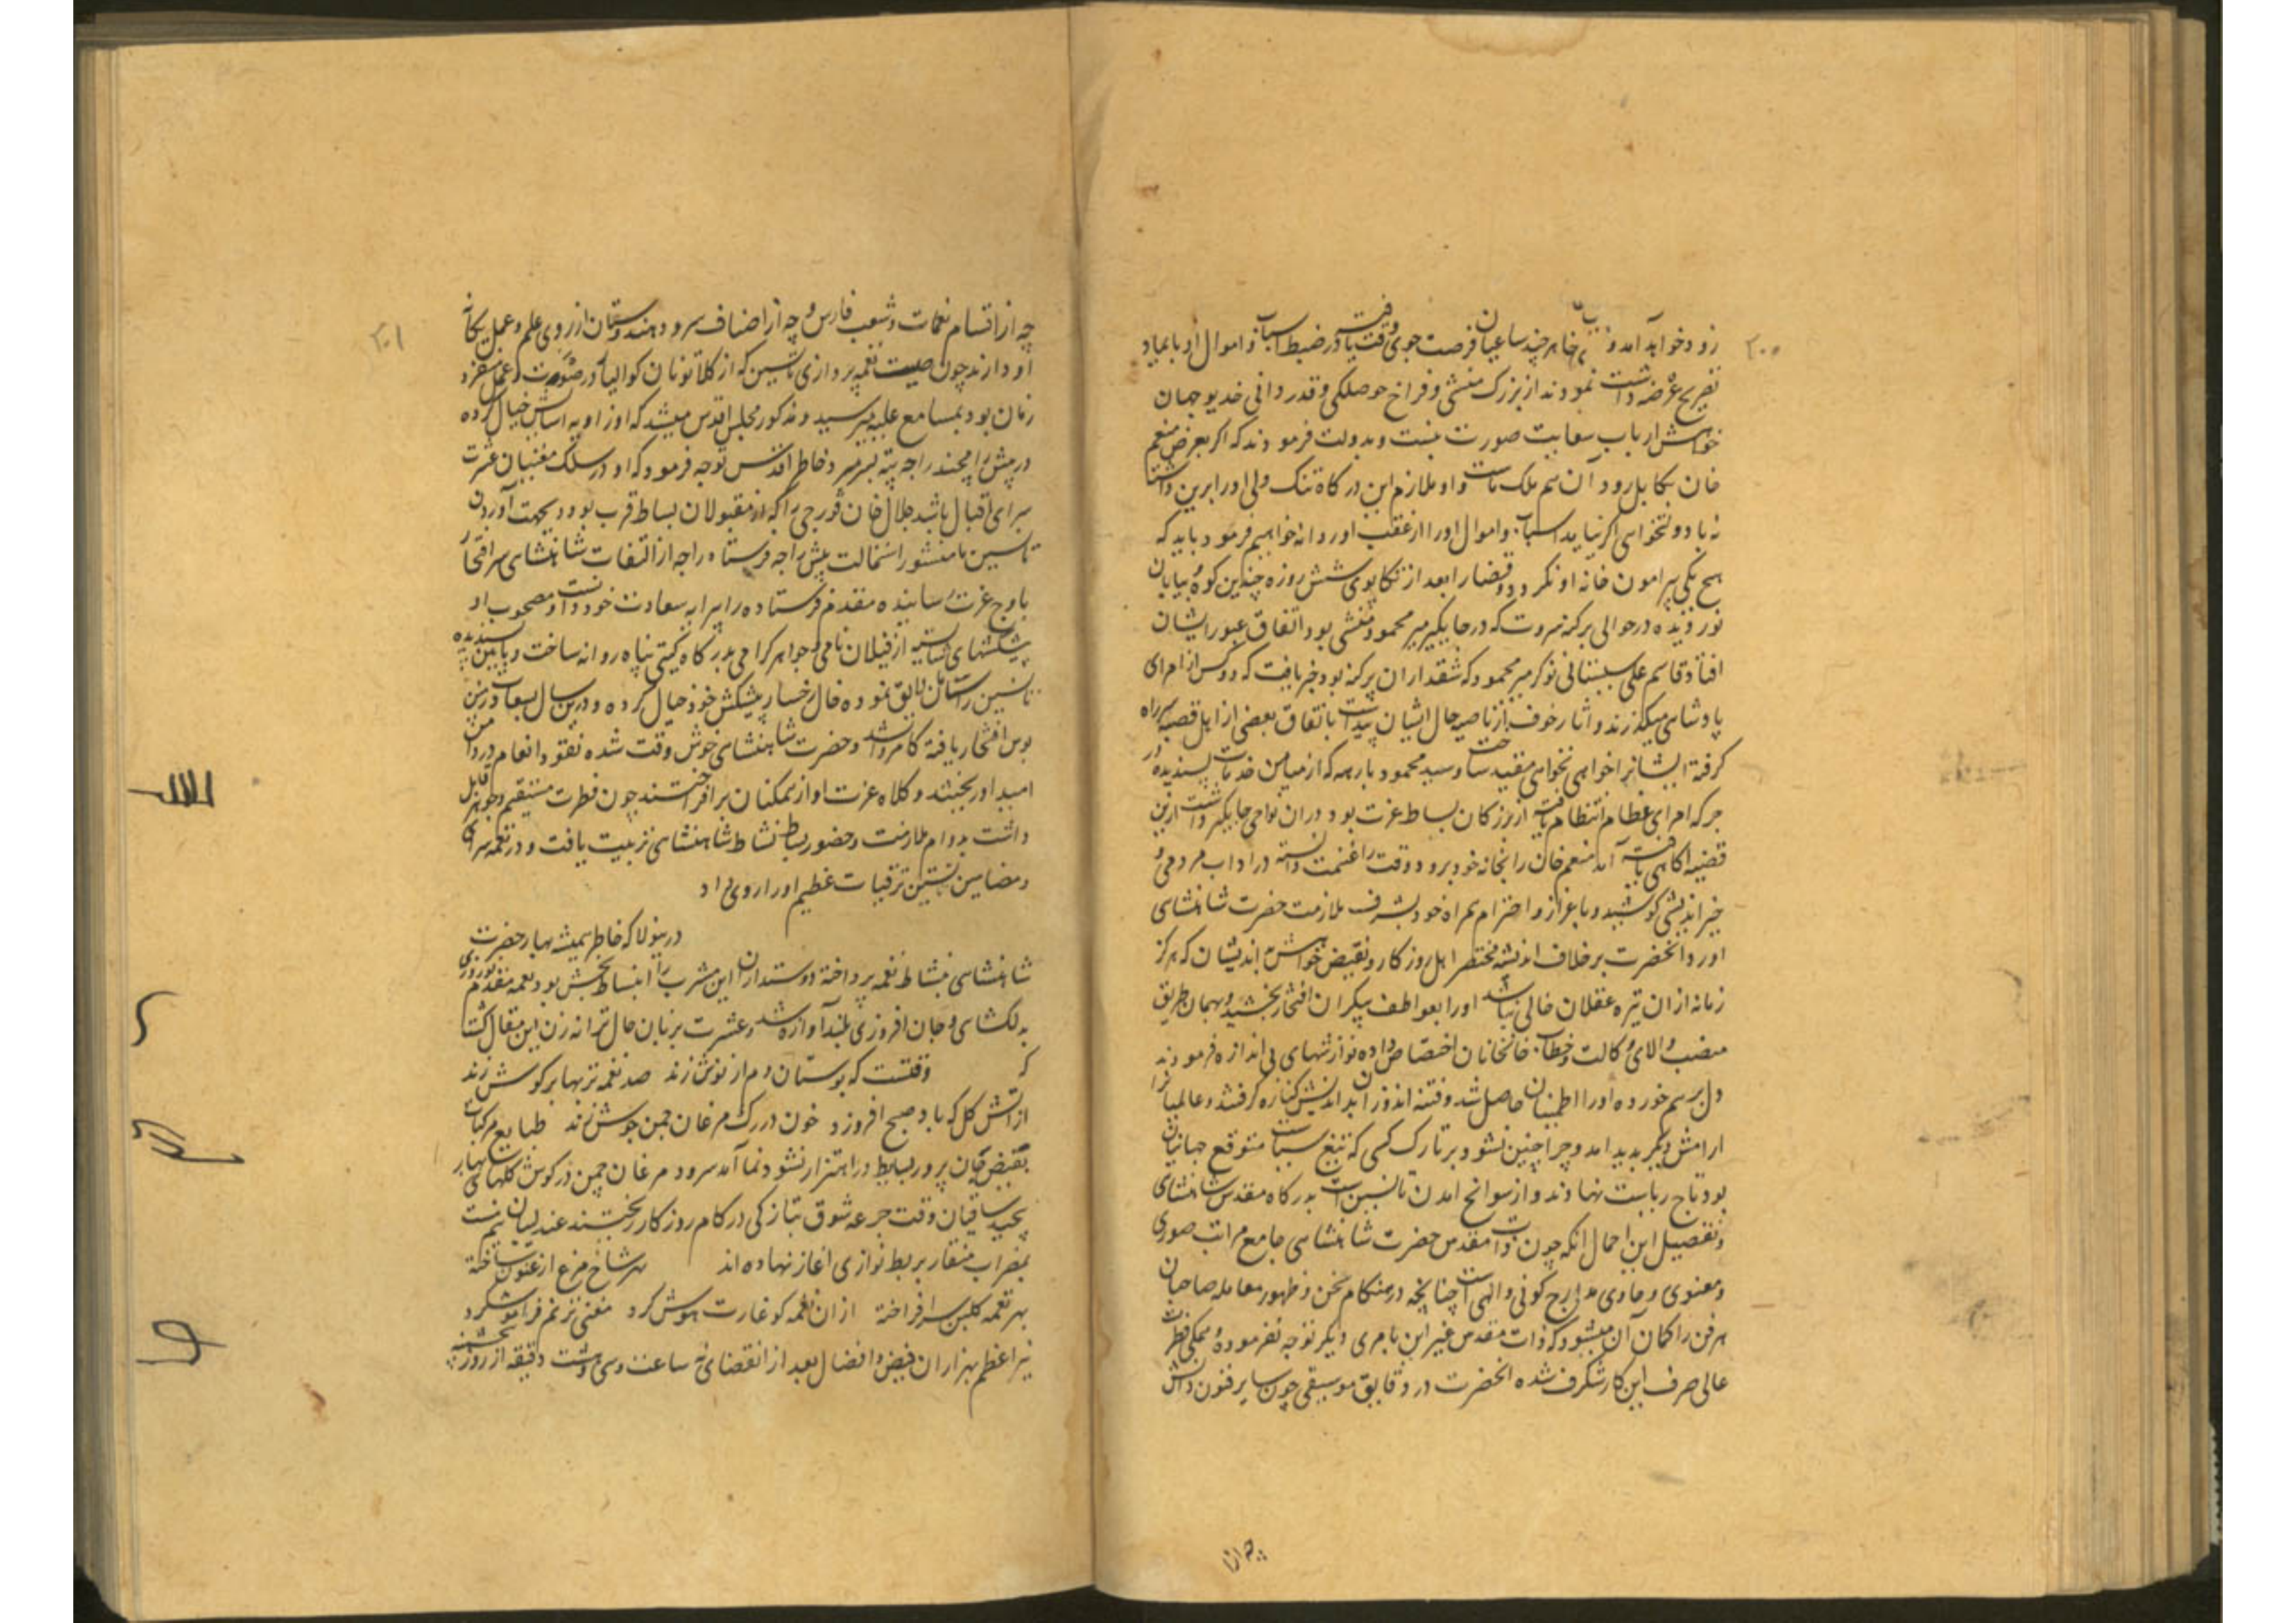 ۲۰۰
زود خواهد آمد و بنابر خاهر چند ساعیان فرصت جوی وقت یافته در ضبط اسباب و اموال او بایماء و
تصریح عرضه داشت نمودند از بزرگ منشی و فراخ حوصلگی و قدردانی خدیو جهان
خواهش ارباب سعایت صورت نبست و بدولت فرمودند که اگر بعرض منعم
خان بکابل رود آن هم ملک ماست و او ملازم این درگاه
نه بادو لتخواهی اگر نیاید اسباب و اموال او را از عقب او روانه خواهیم فرمود باید که
هیچ یکی پیرامون خانه او نگردد و قضا را بعد از تکاپوی شش روزه چندین کوه و بیابان
نوردیده در حوالی پرگنه سروت که در جایگیر میر محمود منشی بود اتفاق عبور ایشان
افتاد قاسم علی سیستانی نوکر میر محمود که شقدار ان پرگنه بود خبر یافت که دو کس از امرای
پادشاهی میگذرند و آثار خوف از ناصیه حال ایشان پیداست باتفاق بعضی از اهل قصبه سر راه
گرفته ایشانرا خواهی نخواهی مقید ساخت و سید محمود بارهه که از میامن خدمات پسندیده در
جرگه امرای عظام انتظام یافته از بزرگان بساط عزت بود دران نواحی جایگیر داشت ازین
قضیه آگاهی یافته آمد منعم خان را بخانه خود برد و وقت را غنیمت دانسته در اداب مردمی و
خیر اندیشی کوشید و باعزاز و احترام همراه خود بشرف ملازمت حضرت شاهنشاهی
آورد آنحضرت برخلاف اندیشه مختصر اهل روزگار و نقیض خواهش بد اندیشان که هرگز
زمانه از ان تیره عقلان خالی نباشد او را بعواطف بیکران افتخار بخشیده و بهمان طریق
منصب والای وکالت و خطاب خانخانان اختصاص داده نوازشهای بی اندازه فرمودند
دل بر هم خورده او را اطمینان حاصل شد و فتنه اندوزان بد اندیش کناره گرفتند و عالمیانرا
ارامش دیگر پدید امد و چرا چنین نشود بر تارک کسی که تیغ سیاست متوقع جهانیان
بود تاج ریاست نهادند و از سوانح امدن تانسین است بدرگاه مقدس شاهنشاهی
و تفصیل این اجمال انکه چون ذات مقدس حضرت شاهنشاهی جامع مراتب صوری
و معنوی و حاوی مدارج کونی و الهی است چنانچه در هنگام سخن و ظهور معامله صاحبان
هر فن را گمان آن میشود که ذات مقدس غیر این بامری دیگر توجه نفرموده و همگی فطرت
عالی صرف این کار شگرف شده انحضرت در دقایق موسیقی چون سایر فنون دانش
چه از
۲۰۱
چه از اقسام نغمات و شعب فارس و چه از اصناف سرود هندوستان از روی علم و عمل یگانه
اودارند چون صیت نغمه پردازی تانسین که از کلانوتان گوالیار در صوت و عمل متفرد
زمان بود بمسامع علیه میرسید و مذکور مجلس اقدس میشد که او زاویه اسایش خیال کرده
در پیش رامچند راجه پته بسر میبرد خاطر اقدس توجه فرمود که او در سلک مغنیان عشرت
سرای اقبال باشد جلال خان قورچی را که از مقبولان بساط قرب بود و بجهت آوردن
تانسین با منشور استمالت پیش راجه فرستاد راجه از التفات شاهنشاهی سر افتخار
باوج عزت رسانیده مقدم فرستاده را پیرایه سعادت خود دانست و مصحوب او
پیشکشهای شایسته از فیلان نامی و جواهر گرامی بدرگاه گیتی پناه روانه ساخت و بآیین پسندیده
تانسین را سامان لایق نموده خال رخسار پیشکش خود خیال کرده و درین سال بسعادت زمین
بوس افتخار یافته کامروا شد و حضرت شاهنشاهی خوش وقت شده نقود انعام در دامن
امید او ریختند و کلاه عزت او از همگنان برافراختند چون فطرت مستقیم و جوهر قابل
داشت بدوام ملازمت و حضور بساط نشاط شاهنشاهی تربیت یافت و در نغمه سرای
و مضامین بستن ترقیات عظیم او را روی داد
درینولا که خاطر همیشه بهار حضرت
شاهنشاهی بنشاط نغمه پرداخته دوستداران این مشرب را انبساط بخش بود نغمه مقدم نوروزی
بدلگشای و جان افروزی بلند آوازه شد و عشرت بزبان حال ترانه زن این مقال گشت
که وقتست که بوستان دم از نوش زند صد نغمه تر بهار بر گوش زند
از آتش گل که باد صبح افروزد خون در رگ مرغان چمن جوش زند طبایع مرکبات
بفیض جان پرور بسایط در اهتزاز نشو و نما آمد سرود مرغان چمن در گوش گلهای بهار
پیچید ساقیان وقت جرعه شوق بتازگی در کام روزگار ریختند عندلیبان نیم مست
بمضراب منقار بربط نوازی آغاز نهاده اند هر شاخ مرغ ارغنون ساخته
بهر نغمه گلبن سر افراخته از ان نغمه کو غارت هوش کرد مغنی ترنم فراموش کرد
نیر اعظم هزاران فیض و افضال بعد از انقضای نه ساعت و سی و هشت دقیقه از روز پنجشنبه